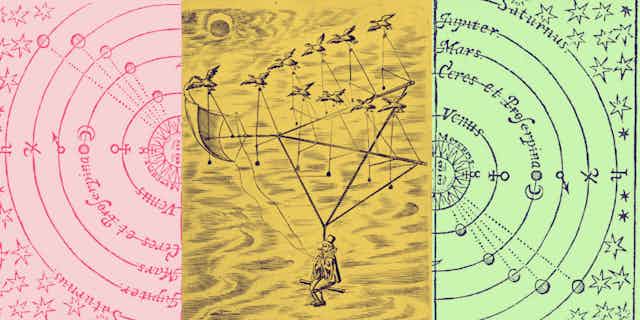 Venus
Ceres et Proserpina
Mars
Jupiter
Saturnus
Saturnus
Jupiter
Mars
Ceres et Proserpina
Venus